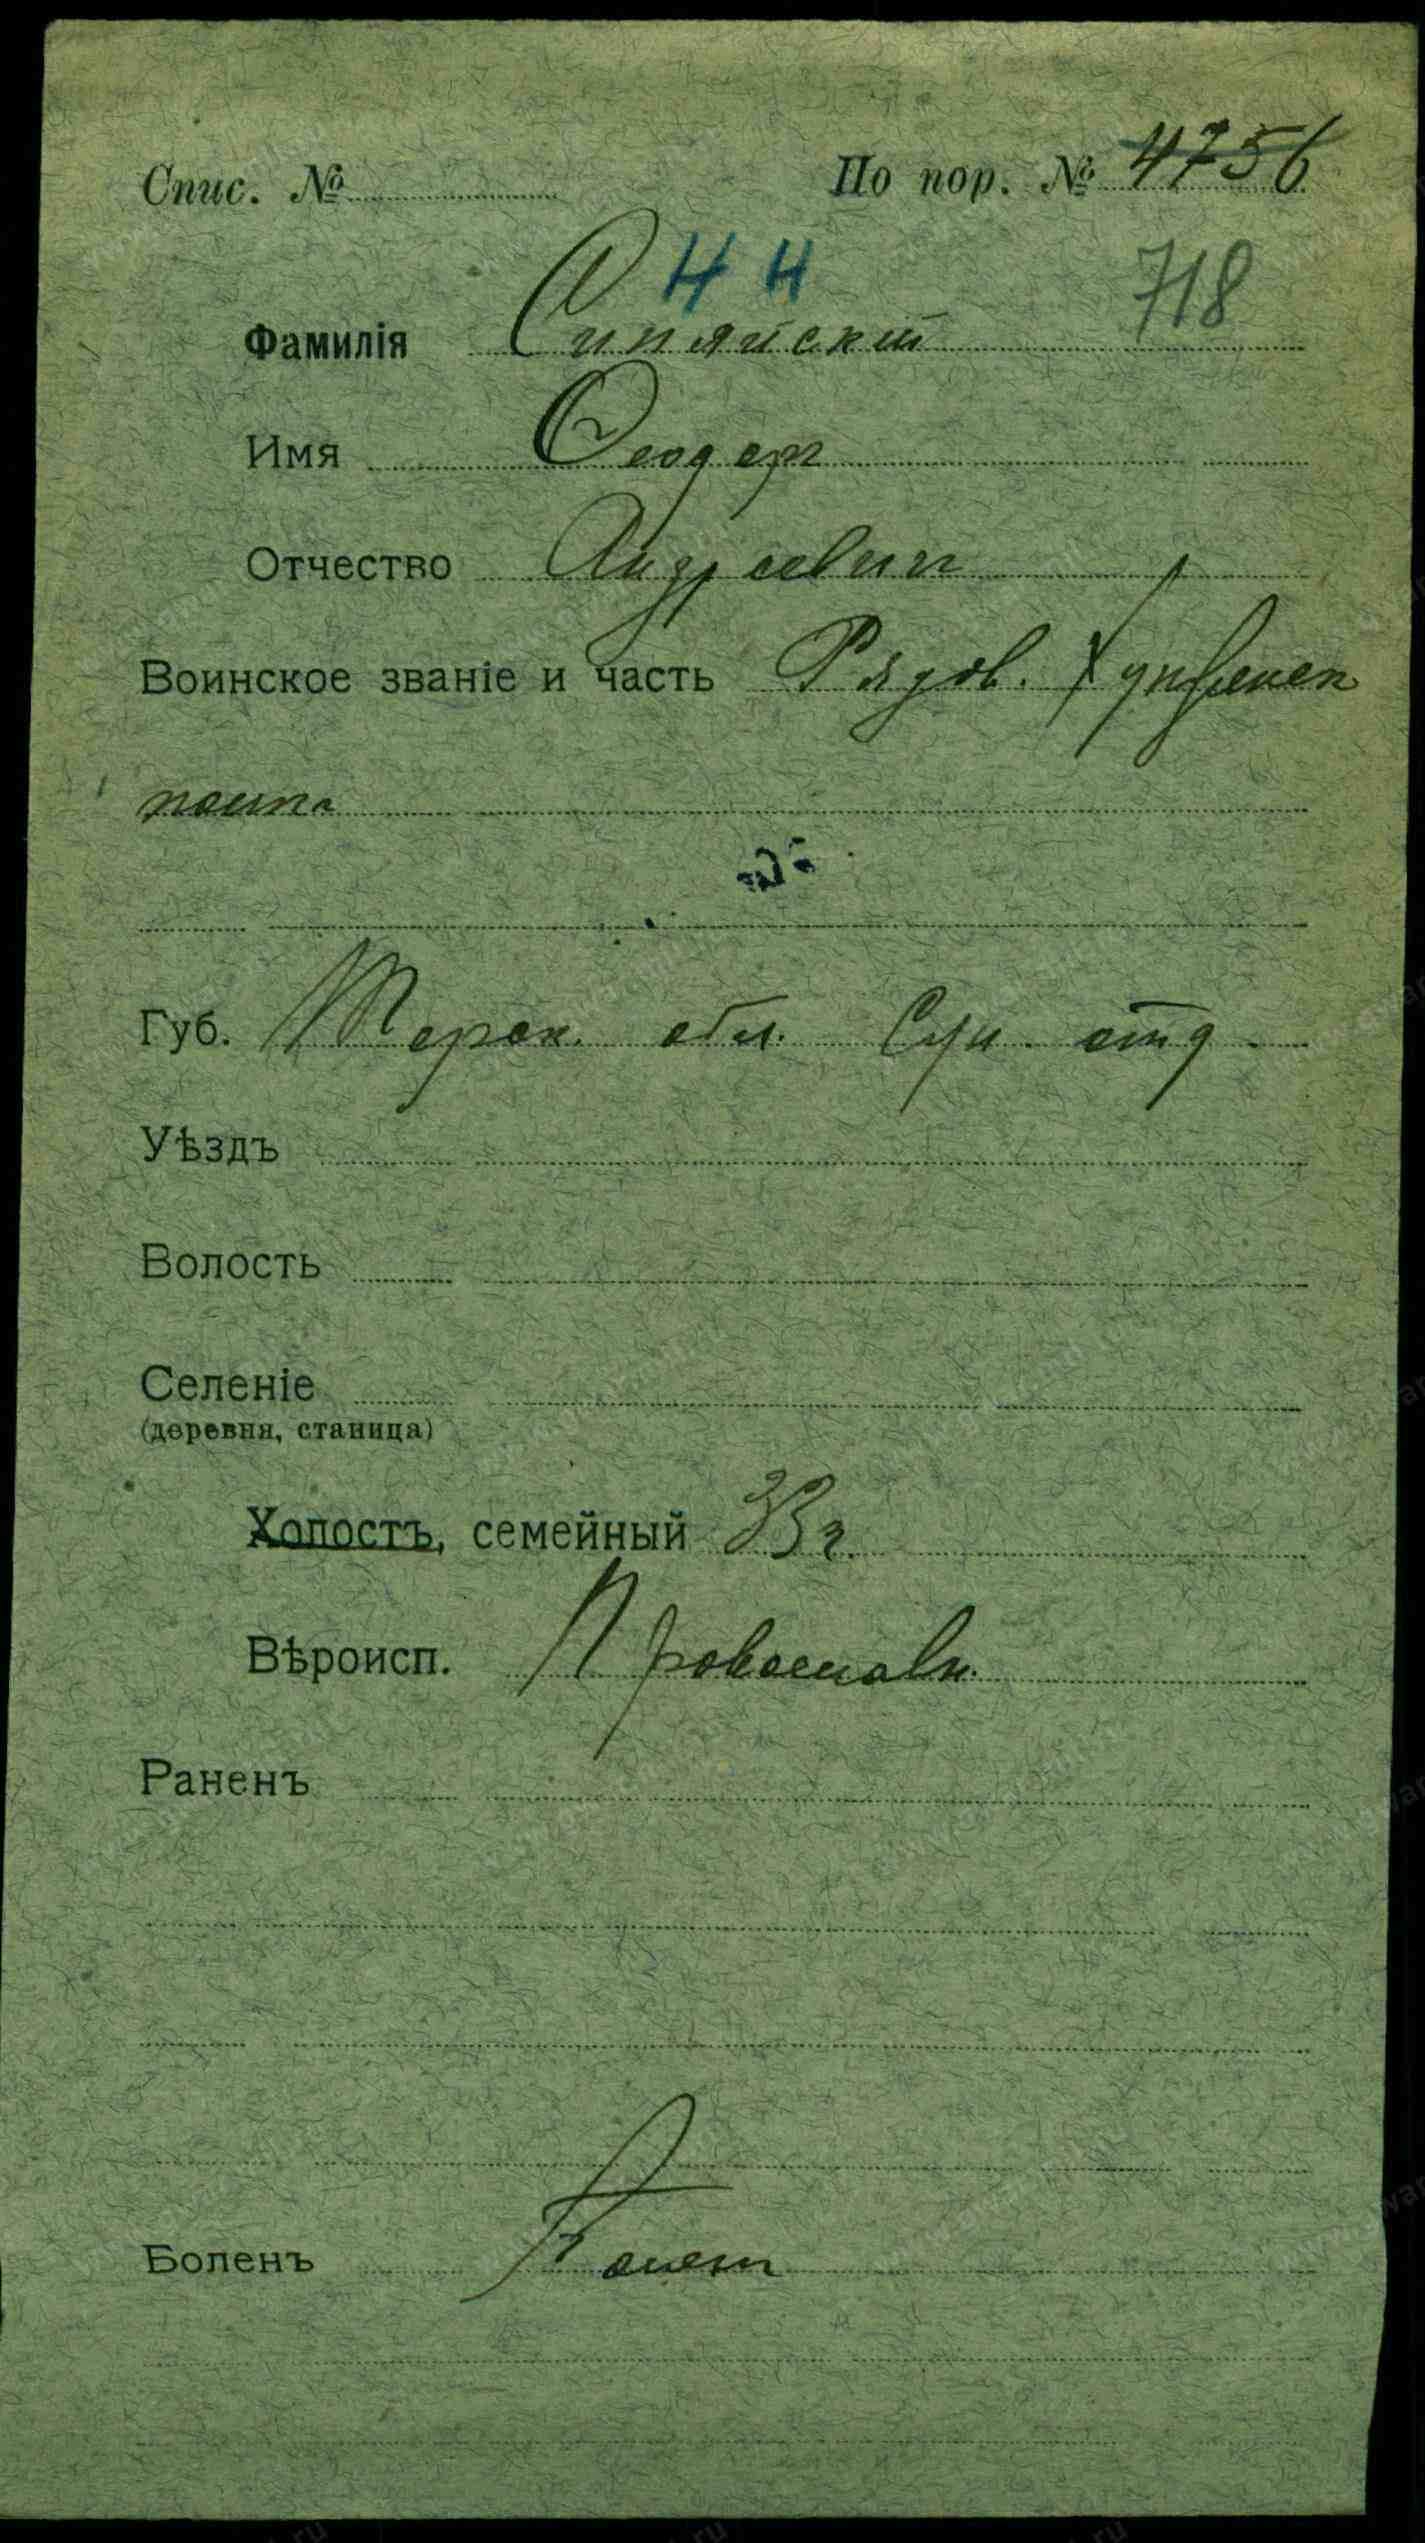 Спис. № По пор. № 4756
Н Н 718
Фамилія Синяйский
Имя Ѳеодоръ
Отчество Андреевичъ
Воинское званіе и часть Рядов.
Губ. Терск. обл. Сун. отд.
Уѣздъ
Волость
Селеніе
(деревня, станица)
Холостъ, семейный 33 г.
Вѣроисп. Православн.
Раненъ
Боленъ Болен